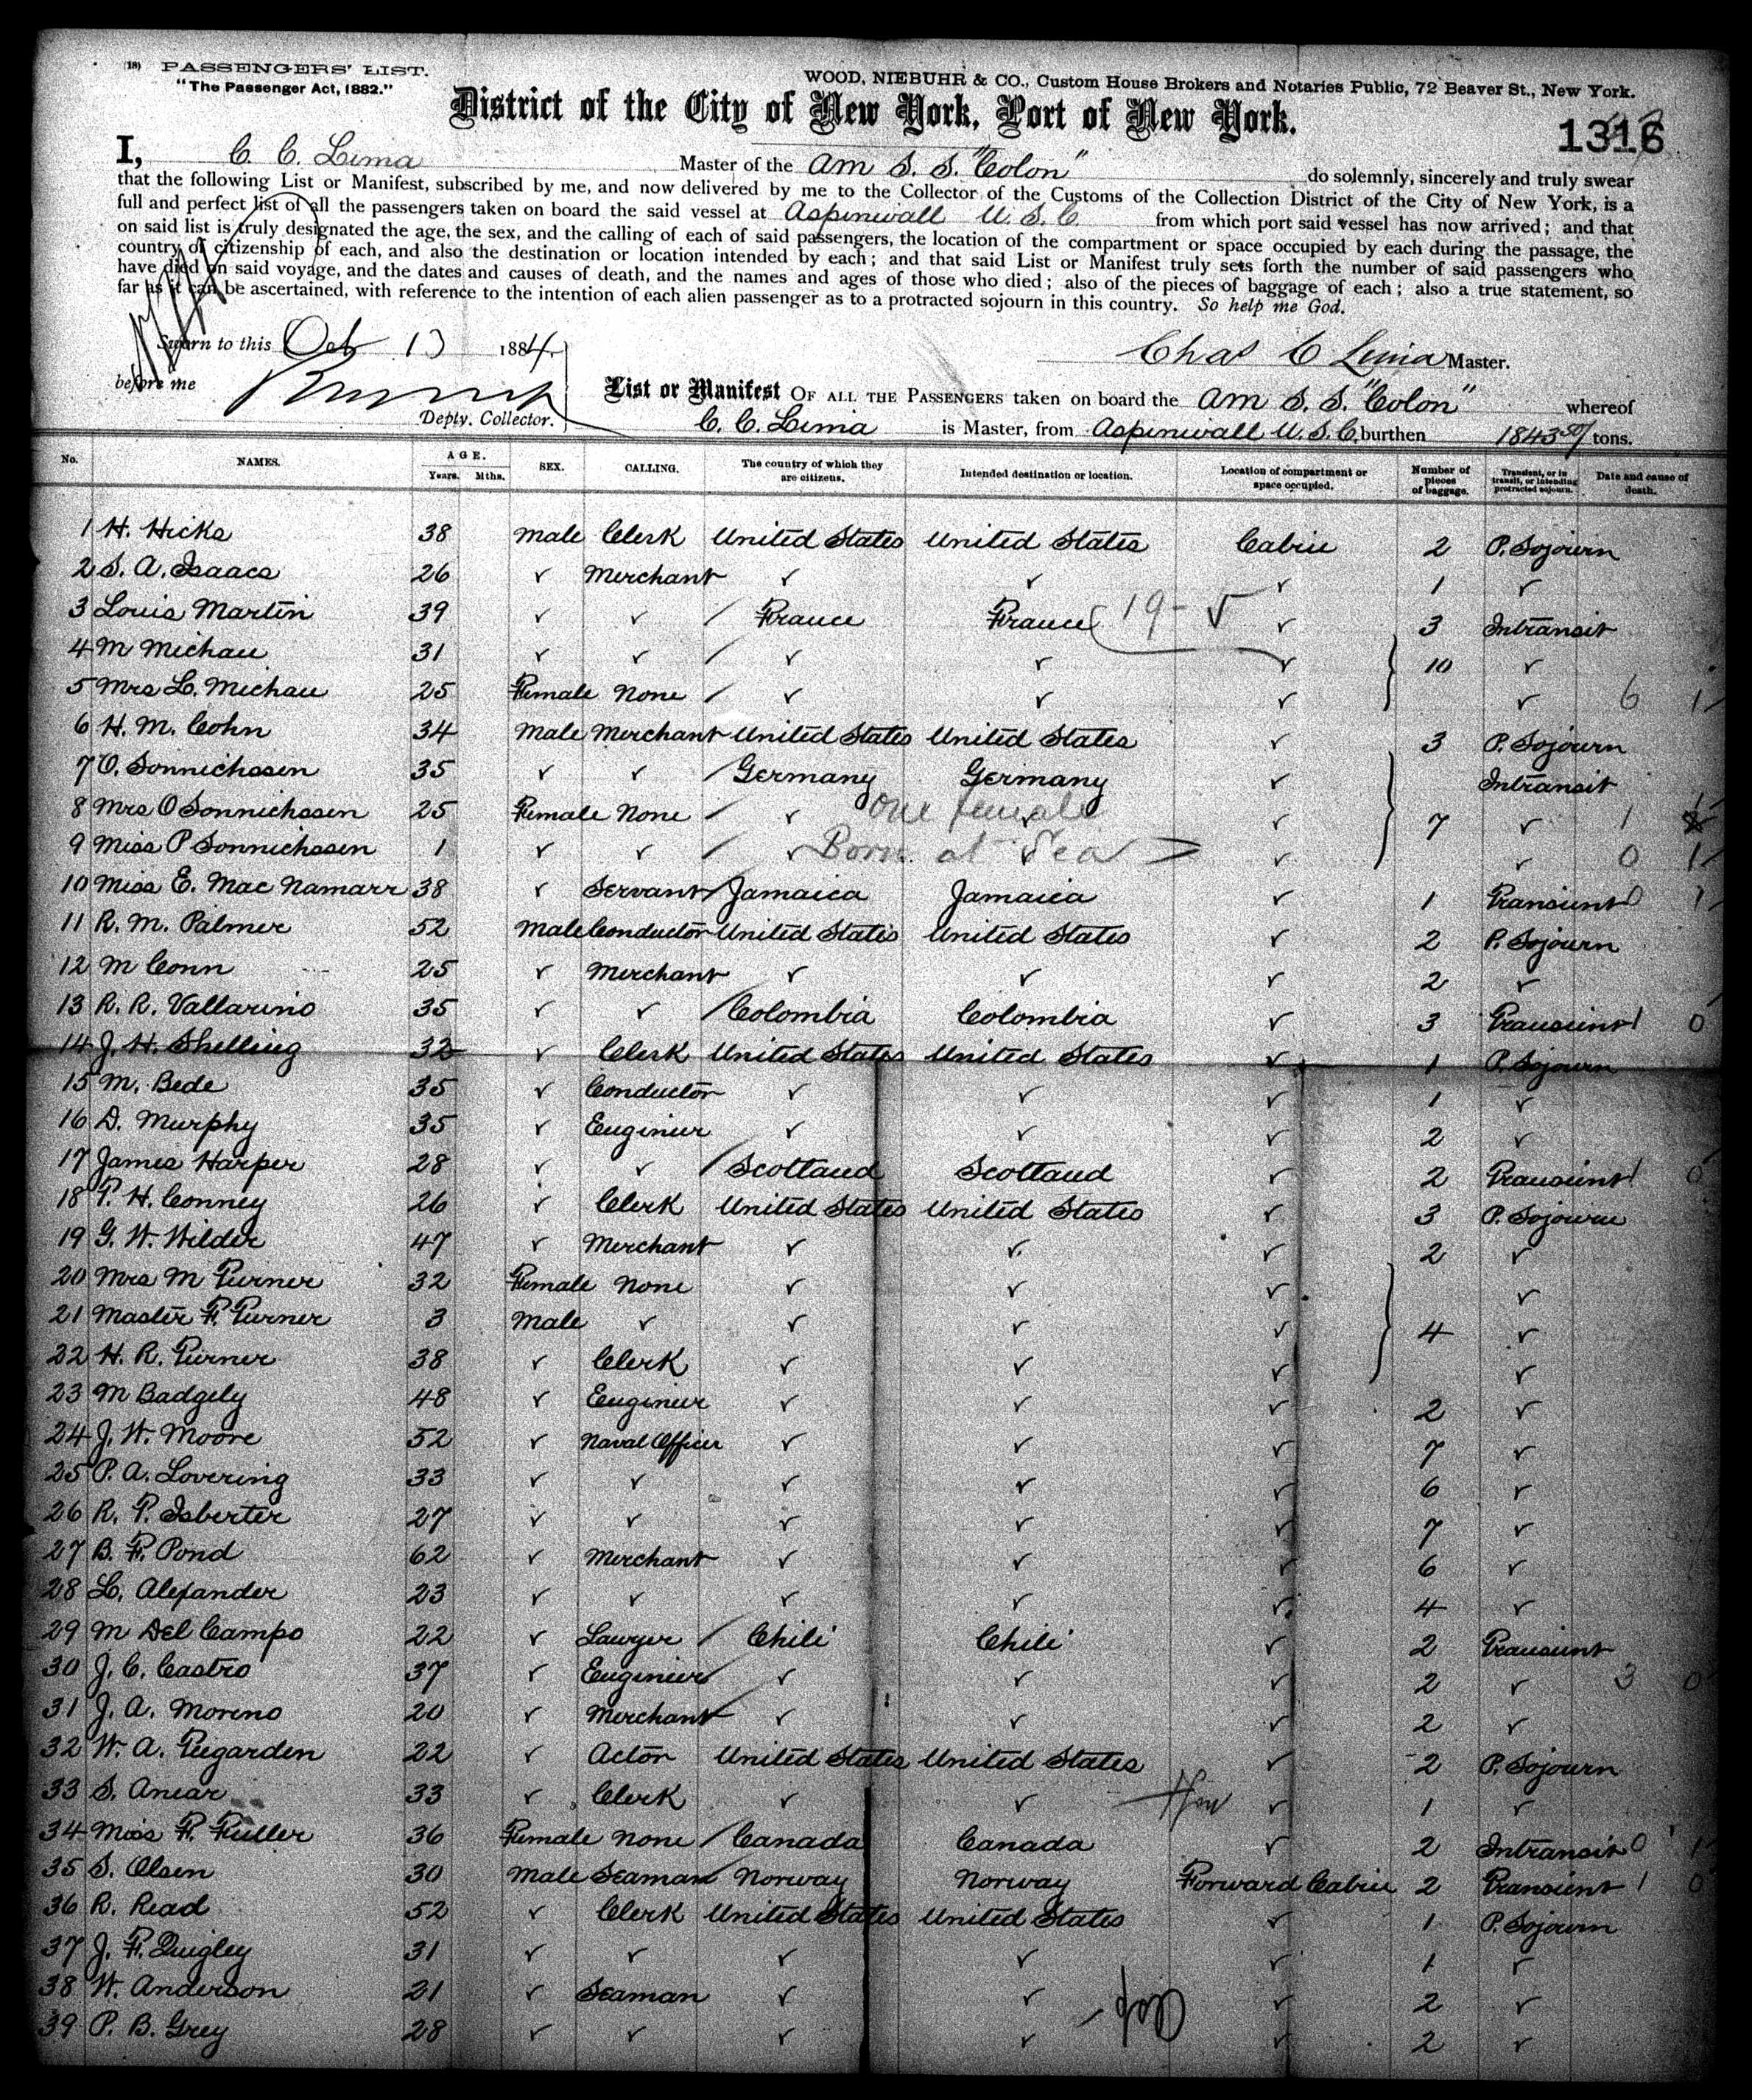 (18) PASSENGERS' LIST.
"The Passenger Act, 1882."
WOOD, NIEBUHR & CO., Custom House Brokers and Notaries Public, 72 Beaver St., New York.
District of the City of New York, Port of New York.
1316
I, C C. Lima Master of the Am S. S. "Colon" do solemnly, sincerely and truly swear
that the following List or Manifest, subscribed by me, and now delivered by me to the Collector of the Customs of the Collection District of the City of New York, is a
full and perfect list of all the passengers taken on board the said vessel at Aspinwall U. S. C. from which port said vessel has now arrived; and that
on said list is truly designated the age, the sex, and the calling of each of said passengers, the location of the compartment or space occupied by each during the passage, the
country of citizenship of each, and also the destination or location intended by each; and that said List or Manifest truly sets forth the number of said passengers who
have died on said voyage, and the dates and causes of death, and the names and ages of those who died; also of the pieces of baggage of each; also a true statement, so
far as it can be ascertained, with reference to the intention of each alien passenger as to a protracted sojourn in this country. So help me God.
Sworn to this Oct 13 1884.
Chas C Lima Master.
before me
Depty. Collector.
List or Manifest OF ALL THE PASSENGERS taken on board the Am S. S. "Colon" whereof
C. C. Lima is Master, from Aspinwall U. S. C. burthen 1843 tons.
No. NAMES. AGE. Years. Mths. SEX. CALLING. The country of which they are citizens. Intended destination or location. Location of compartment or space occupied. Number of pieces of baggage. Transient, or in transit, or intending protracted sojourn. Date and cause of death.
1 H. Hicks 38 Male Clerk United States United States Cabin 2 P. Sojourn
2 S. A. Isaacs 26 ✓ Merchant ✓ ✓ ✓ 1 ✓
3 Louis Martin 39 ✓ ✓ / France France 19- √ ✓ 3 Intransit
4 M Michau 31 ✓ ✓ / ✓ ✓ ✓ 10 ✓
5 Mrs L. Michau 25 Female None / ✓ ✓ ✓ ✓ 6 1
6 H. M. Cohn 34 Male Merchant United States United States ✓ 3 P. Sojourn
7 O. Sonnichssen 35 ✓ ✓ / Germany Germany ✓ Intransit
8 Mrs O Sonnichssen 25 Female None / ✓ One female ✓ ✓ 7 ✓ 1
9 Miss P Sonnichssen 1 ✓ ✓ / ✓ Born at Sea ✓ ✓ ✓ 0 1
10 Miss E. Mac Namarr 38 ✓ Servant / Jamaica Jamaica ✓ 1 Transient 0 1
11 R. M. Palmer 52 Male Conductor United States United States ✓ 2 P. Sojourn
12 M Conn 25 ✓ Merchant ✓ ✓ ✓ 2 ✓
13 R. R. Vallarino 35 ✓ ✓ / Colombia Colombia ✓ 3 Transient 1 0
14 J. H. Shelling 32 ✓ Clerk United States United States ✓ 1 P. Sojourn
15 M. Bede 35 ✓ Conductor ✓ ✓ ✓ 1 ✓
16 D. Murphy 35 ✓ Engineer ✓ ✓ ✓ 2 ✓
17 James Harper 28 ✓ ✓ / Scotland Scotland ✓ 2 Transient 1 0
18 T. H. Conney 26 ✓ Clerk United States United States ✓ 3 P. Sojourn
19 G. W. Wilder 47 ✓ Merchant ✓ ✓ ✓ 2 ✓
20 Mrs M Turner 32 Female None ✓ ✓ ✓ ✓
21 Master F. Turner 3 Male ✓ ✓ ✓ ✓ 4 ✓
22 H. R. Turner 38 ✓ Clerk ✓ ✓ ✓ ✓
23 M Badgely 48 ✓ Engineer ✓ ✓ ✓ 2 ✓
24 J. W. Moore 52 ✓ Naval Officer ✓ ✓ ✓ 7 ✓
25 P. A. Lovering 33 ✓ ✓ ✓ ✓ ✓ 6 ✓
26 R. T. Isberter 27 ✓ ✓ ✓ ✓ ✓ 7 ✓
27 B. F. Pond 62 ✓ Merchant ✓ ✓ ✓ 6 ✓
28 L. Alexander 23 ✓ ✓ ✓ ✓ ✓ 4 ✓
29 M Del Campo 22 ✓ Lawyer / Chili Chili ✓ 2 Transient
30 J. C. Castro 37 ✓ Engineer / ✓ ✓ ✓ 2 ✓ 3 0
31 J. A. Moreno 20 ✓ Merchant / ✓ ✓ ✓ 2 ✓
32 W. A. Teegarden 22 ✓ Actor United States United States ✓ 2 P. Sojourn
33 S. Anear 33 ✓ Clerk ✓ ✓ ✓ 1 ✓
34 Miss F. Fuller 36 Female None / Canada Canada ✓ 2 Intransit 0 1
35 S. Olsen 30 Male Seaman / Norway Norway Forward Cabin 2 Transient 1 0
36 R. Read 52 ✓ Clerk United States United States ✓ 1 P. Sojourn
37 J. F. Quigley 31 ✓ ✓ ✓ ✓ ✓ 1 ✓
38 W. Anderson 21 ✓ Seaman ✓ ✓ ✓ 2 ✓
39 P. B. Grey 28 ✓ ✓ ✓ ✓ ✓ 2 ✓